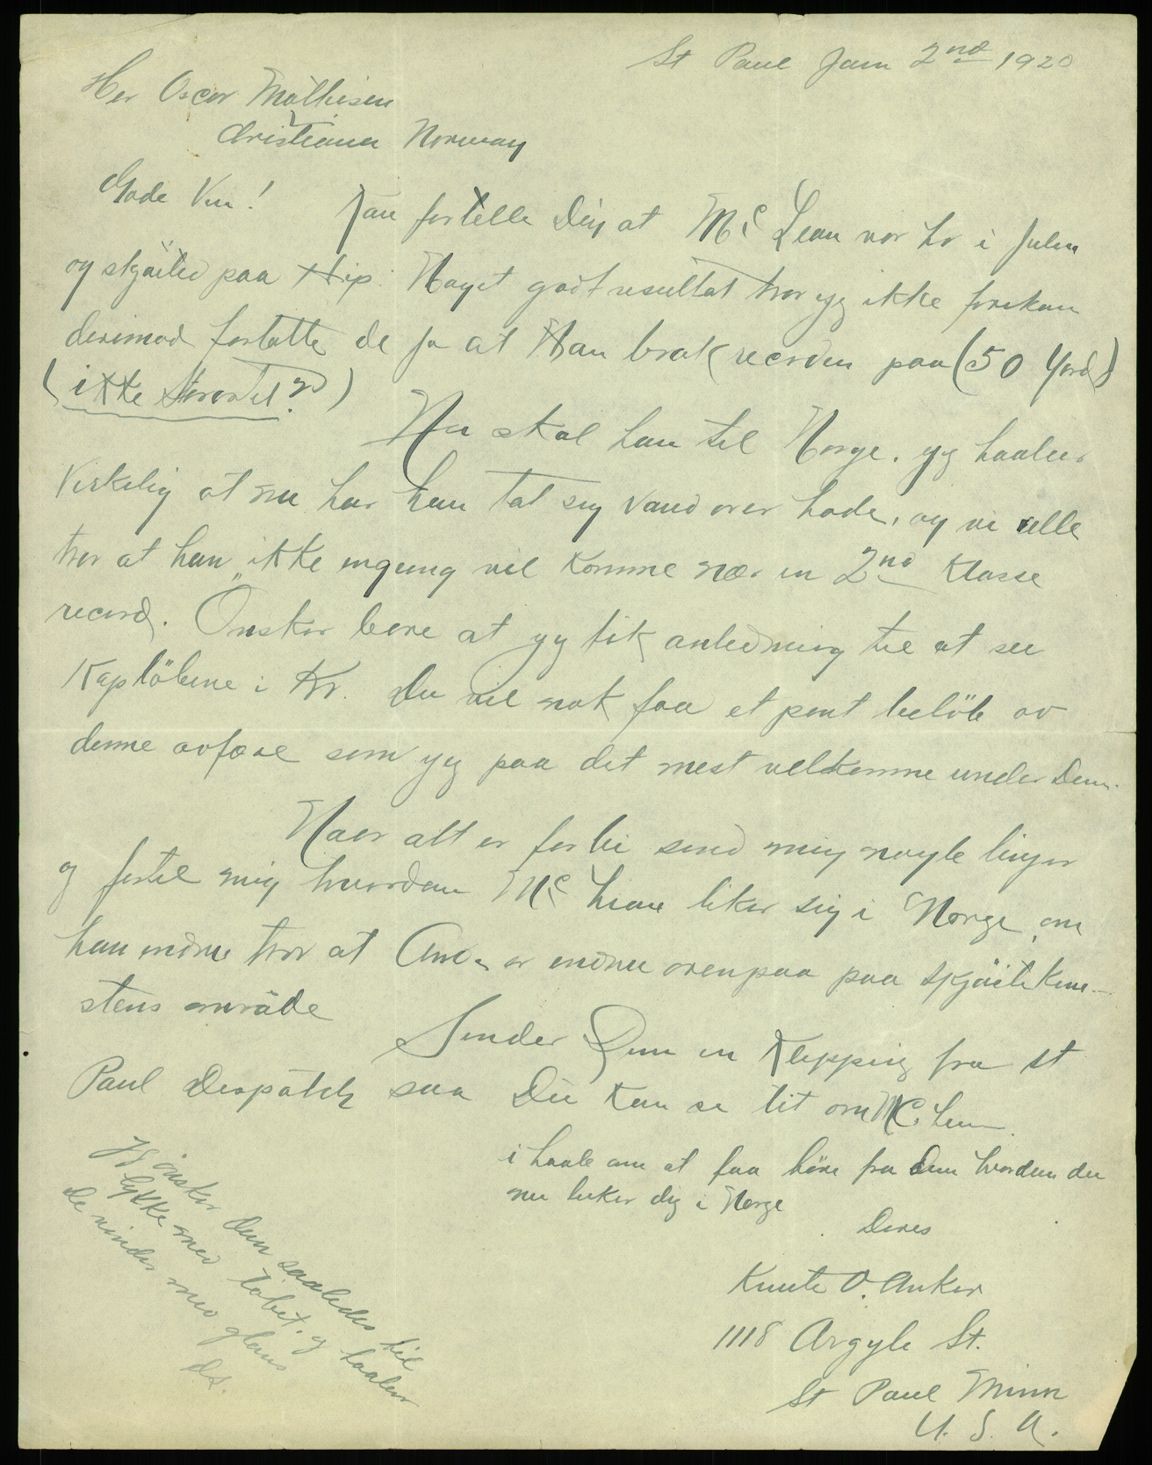 St Paul Jan 2nd 1920
Her Oscar Mathisen
Christiana Norway
Gode Ven! Kan fortelle Dig at Mc Lean var her i Julen
og skjöited paa Hip. Noget godt resultat tror jeg ikke forekom
derimod fortalte de jo at Han brak recorden paa (50 Yards)
(ikke Storartet?)
Nu skal han til Norge, jeg haaber
Virkelig at nu har han tat sig vand over hode, og vi alle
tror at han ikke engang vil komme nær en 2nd Klasse
record. Önsker bare at jeg fik anledning til at see
Kaplöbene i Kr. Du vil nok faa et pent belöb av
denne avfære som jeg paa det mest velkomne under Dem.
Naar alt er forbi send mig nogle linjer
og fortel mig hvordan Mc Lean liker sig i Norge, om
han endnu tror at er endnu ovenpaa paa Skjöitekun-
stens område
Sender Dem en Klipping fra St
Paul Despatch saa Du kan se lit om Mc. Lean
i haab om at faa höre fra Dem hvordan du
nu liker dig i Norge
Deres
Knute O. Anker
1118 Argyle St.
St Paul Minn
U. S. A.
Jeg önsker Dem saaledes til
lykke med löbet, og haaber
De vinder med glans
ds.